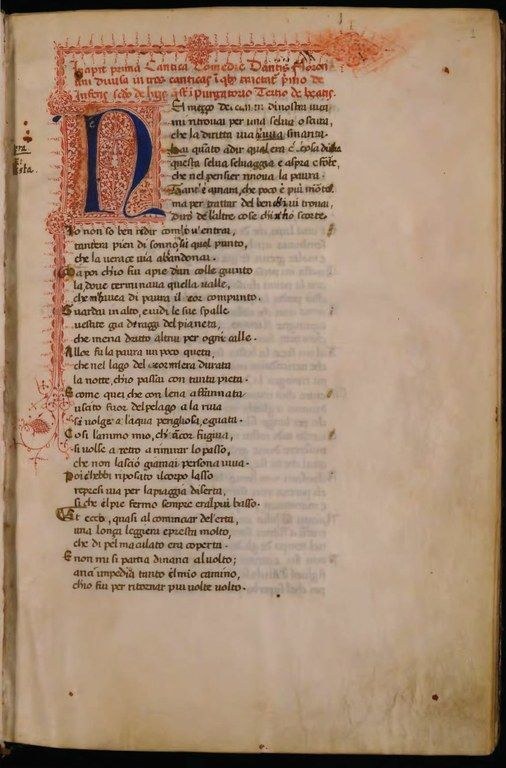 Incipit prima Cantica Comedie Dantis Floren
tini diuisa in tres canticas i qbus tractat pmo de
Infernis scdo de hijs qui st i purgatorio Tertio de beatis.
NEl mezzo del camin di nostra uita
mi ritrouai per una selua oscura,
che la diritta uia era smarita.
Hai quanto a dir qual era e cosa dura
questa selua seluaggia e aspra e forte,
che nel pensier rinoua la paura.
Tant e amara, che poco e piu morte
ma per trattar del ben chiui trouai,
diro de laltre cose chi ho scorte.
Io non so ben redir com io u entrai,
tantera pien di sonno su quel punto,
che la uerace uia abandonai.
Ma poi chio fui a pie dun colle giunto
la doue terminaua quella ualle,
che mhauea di paura il cor compunto.
Guardai in alto, e uidi le sue spalle
uestite gia di raggi del pianeta,
che mena dritto altrui per ogni calle.
Allor fu la paura un poco queta,
che nel lago del cor mera durata
la notte, chio passai con tanta pieta.
E come quei che con lena affannata
uscito fuor del pelago a la riua
si uolge a laqua perigliosa, e guata.
Cosi lanimo mio, ch ancor fugiua,
si uolse a retro a rimirar lo passo,
che non lascio giamai persona uiua.
Poi chebbi riposato il corpo lasso
represi uia per la piaggia diserta,
si che el pie fermo sempre era l piu basso.
Et ecco, quasi al cominciar del erta,
una lonça leggiera e presta molto,
che di pel maculato era coperta.
E non mi si partia dinanci al uolto;
anci impedia tanto el mio camino,
chio fui per ritornar piu uolte uolto.